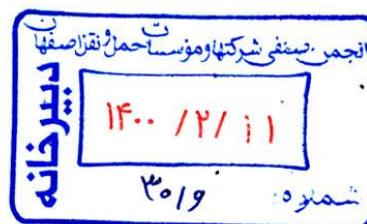 انجمن صنفی شرکتها و مؤسسات حمل و نقل اصفهان
دبیرخانه
۱۴۰۰ /۲/ ۱۱
شماره: ۳۰۱۹